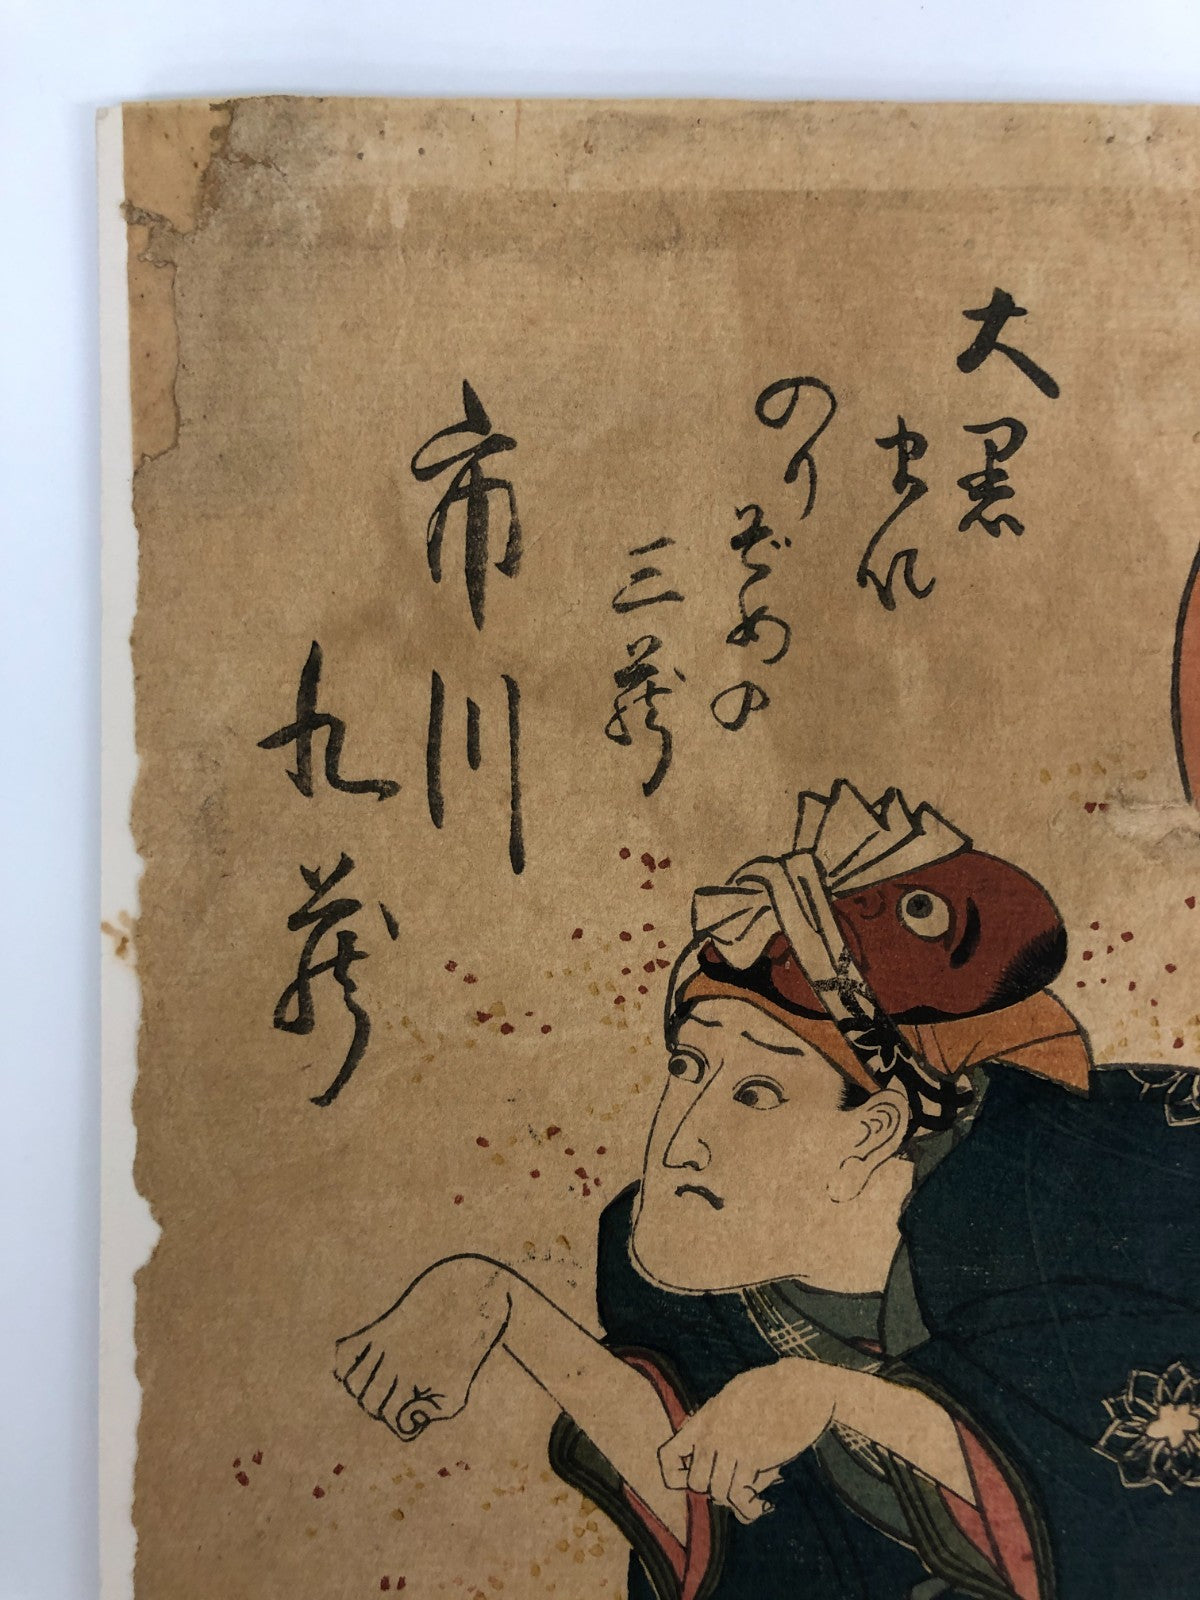 大黒
のりぞめの
三蔵
市川
九蔵